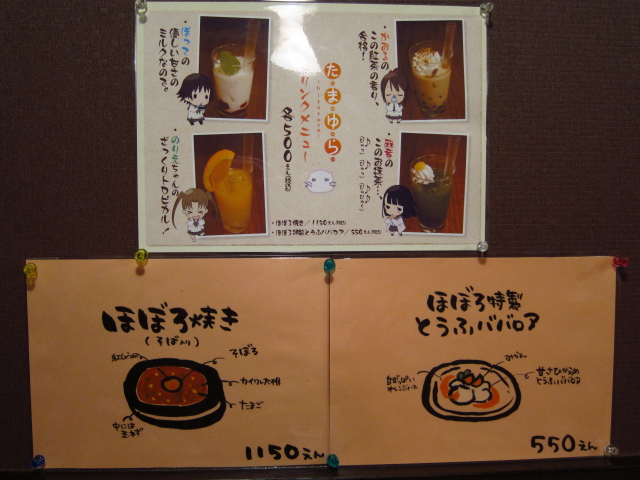 ぽっての
優しい甘さの
ミルクなので。
かおるの
この紅茶の香り、
合格!
たまゆら
ドリンクメニュー
各500えん(税込)
のりえちゃんの
麻音の
この抹茶…
・ほぼろ焼き/1150えん(税込)
・ほぼろ特製とうふババロア/550えん(税込)
ほぼろ焼き
(そば入り)
そぼろ
カイワレ大根
たまご
中には
玉ネギ
1150えん
ほぼろ特製
とうふババロア
みかん
甘ずっぱい
オレンジソース
甘さひかえめ
とうふババロア
550えん